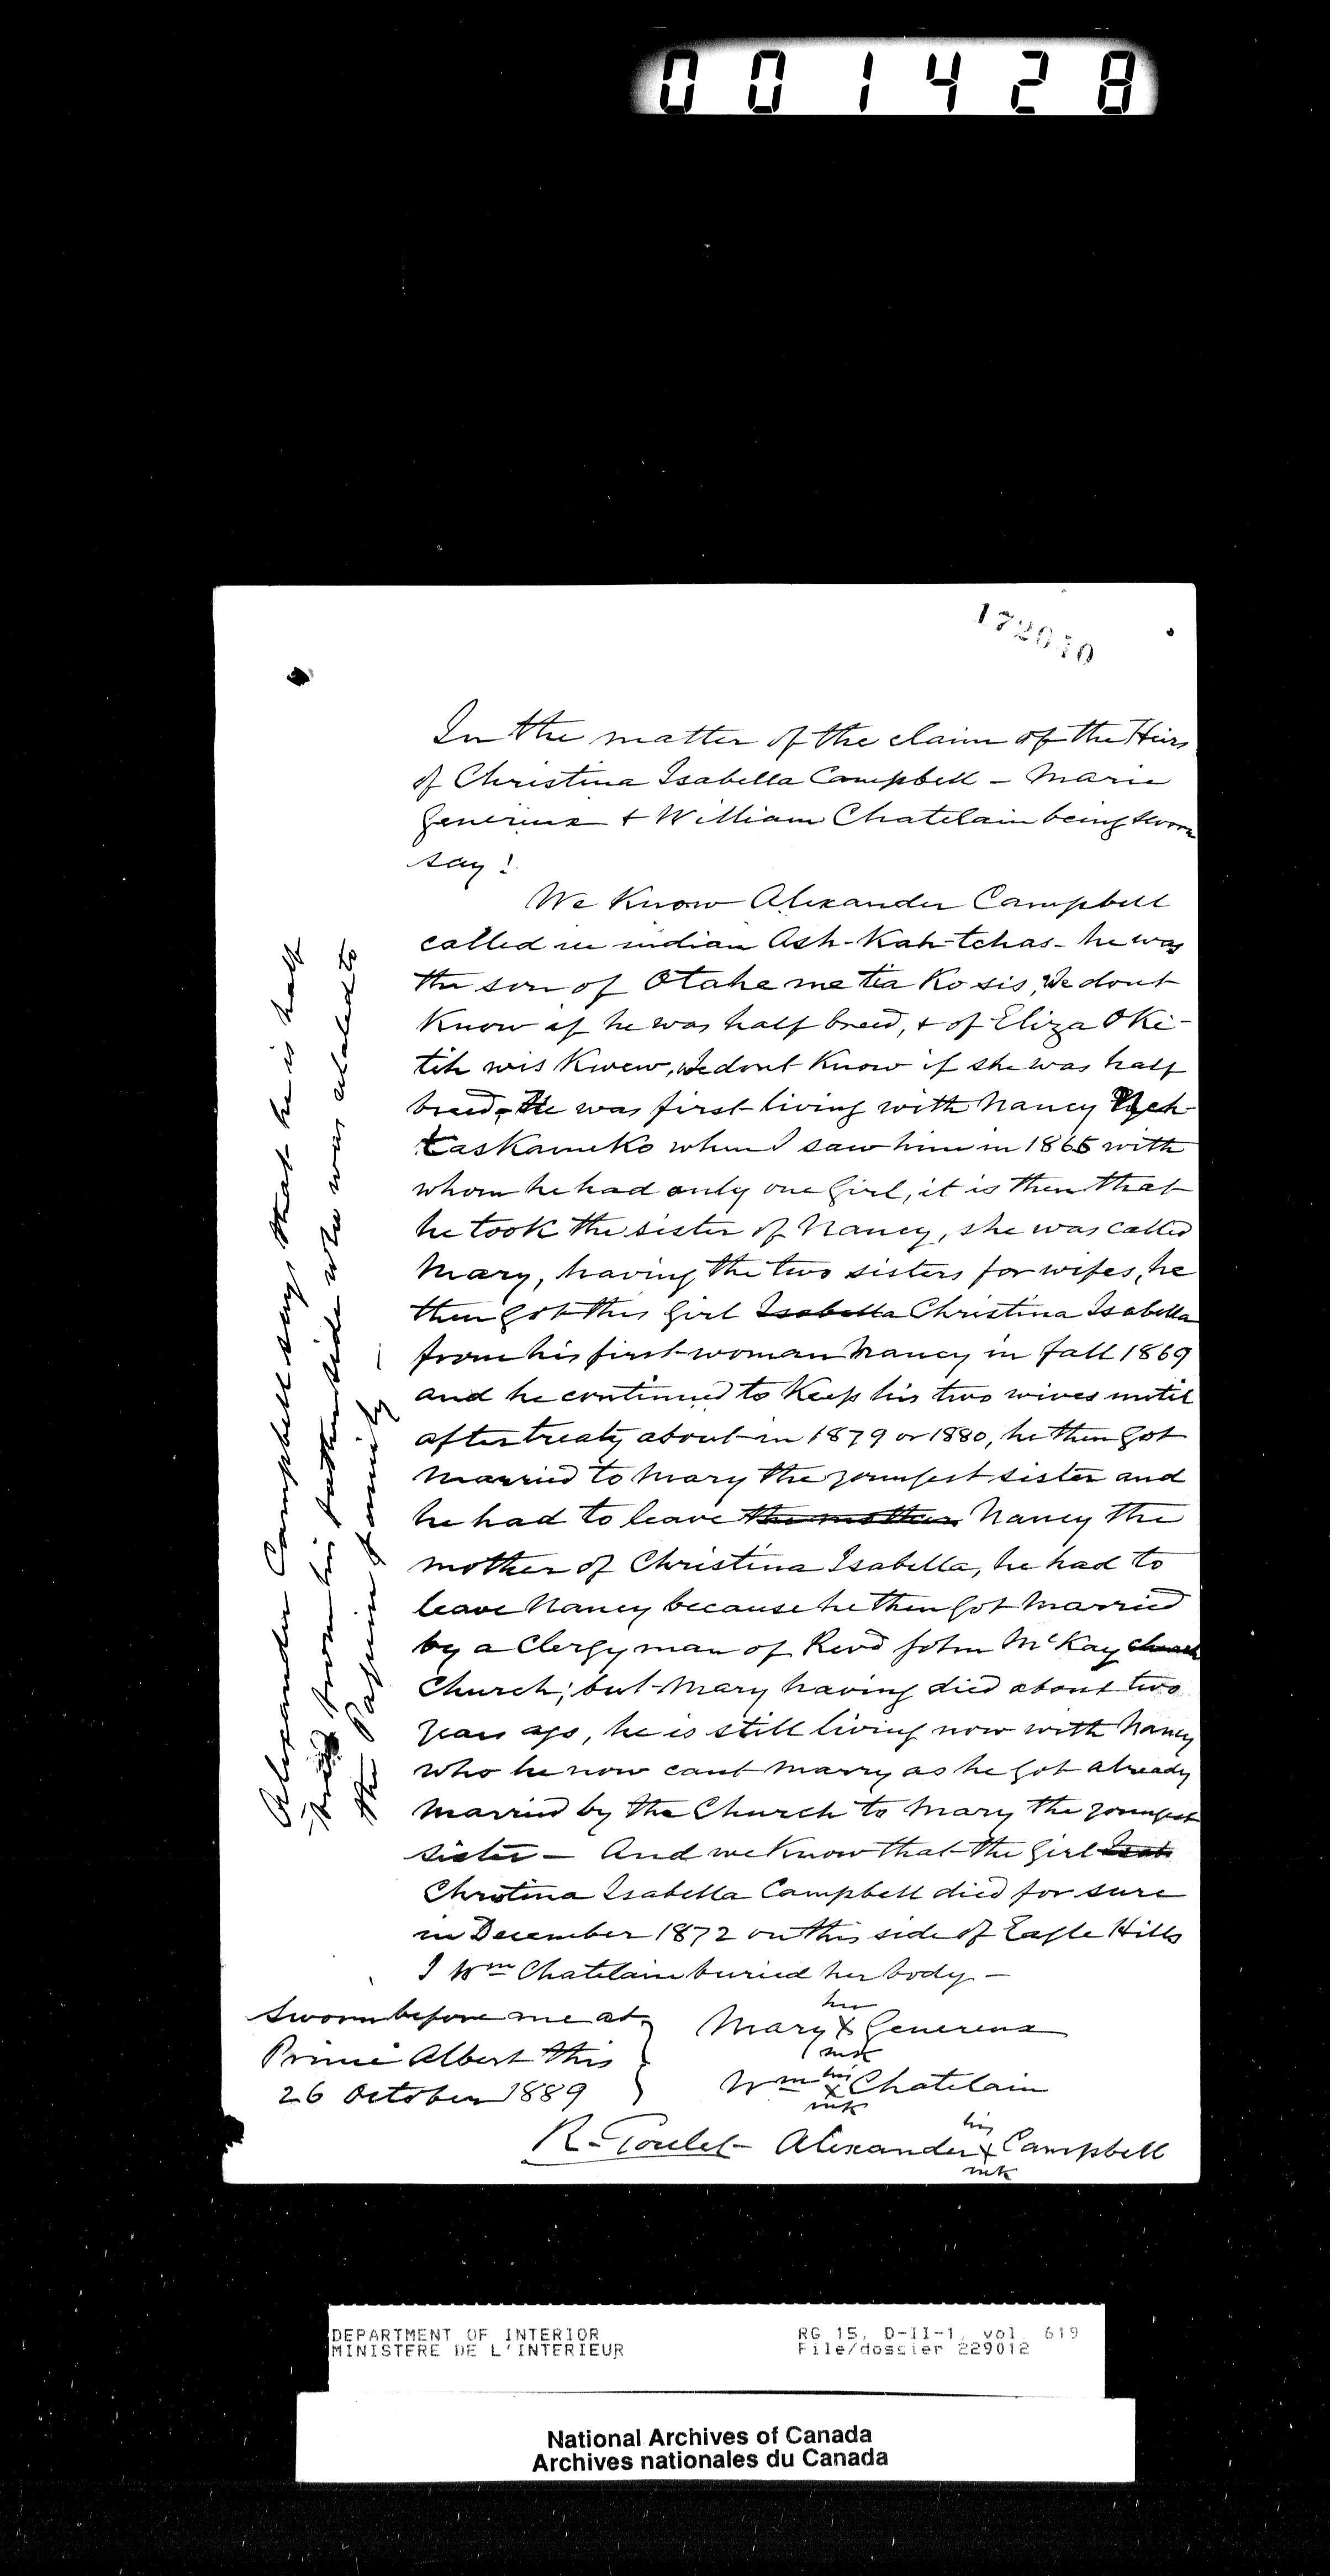 001428
172070
In the matter of the claim of the Heirs
of Christina Isabella Campbell – Marie
Genereux + William Chatelain being sworn
say!
We Know Alexander Campbell
called in indian Ash-Kah-tchas- he was
the son of Otahe me tea Ko sis, We dont
Know if he was half breed, + of Eliza Oki-
tih wis Kwew, We dont Know if she was half
breed, He was first living with Nancy
taskameko when I saw him in 1865 with
whom he had only one girl, it is then that
he took the sister of Nancy, she was called
Mary, having the two sisters for wifes, he
then got this girl Isabella Christina Isabella
from his first woman Nancy in fall 1869
and he continued to Keep his two wives until
after treaty about in 1879 or 1880, he then got
married to Mary the youngest sister and
he had to leave the mother Nancy the
mother of Christina Isabella, he had to
leave Nancy because he then got married
by a Clergyman of Revd John McKay church
Church; but Mary having died about two
years ago, he is still living now with Nancy
who he now cant marry as he got already
married by the Church to Mary the youngest
sister – And we Know that the girl Isab
Christina Isabella Campbell died for sure
in December 1872 on this side of Eagle Hills
I Wm Chatelain buried her body –
Alexander Campbell says that he is half
breed from his father side who was related to
the family –
Sworn before me at
Prince Albert this
26 October 1889
her
Mary X Genereux
mk
his
Wm X Chatelain
mk
R. Goulet – his
Alexander X Campbell
mk
DEPARTMENT OF INTERIOR
MINISTERE DE L'INTERIEUR
RG 15, D-II-1, vol. 619
File/dossier 229012
National Archives of Canada
Archives nationales du Canada